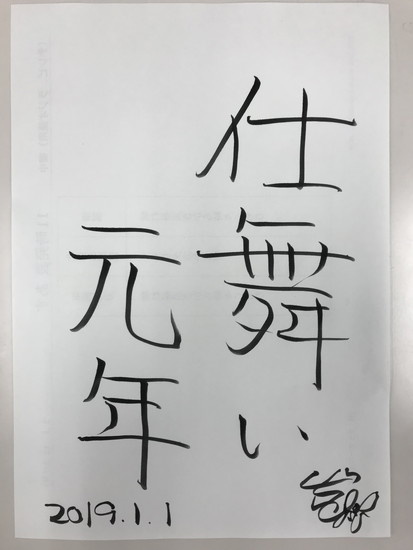 仕舞い
元年
2019.1.1